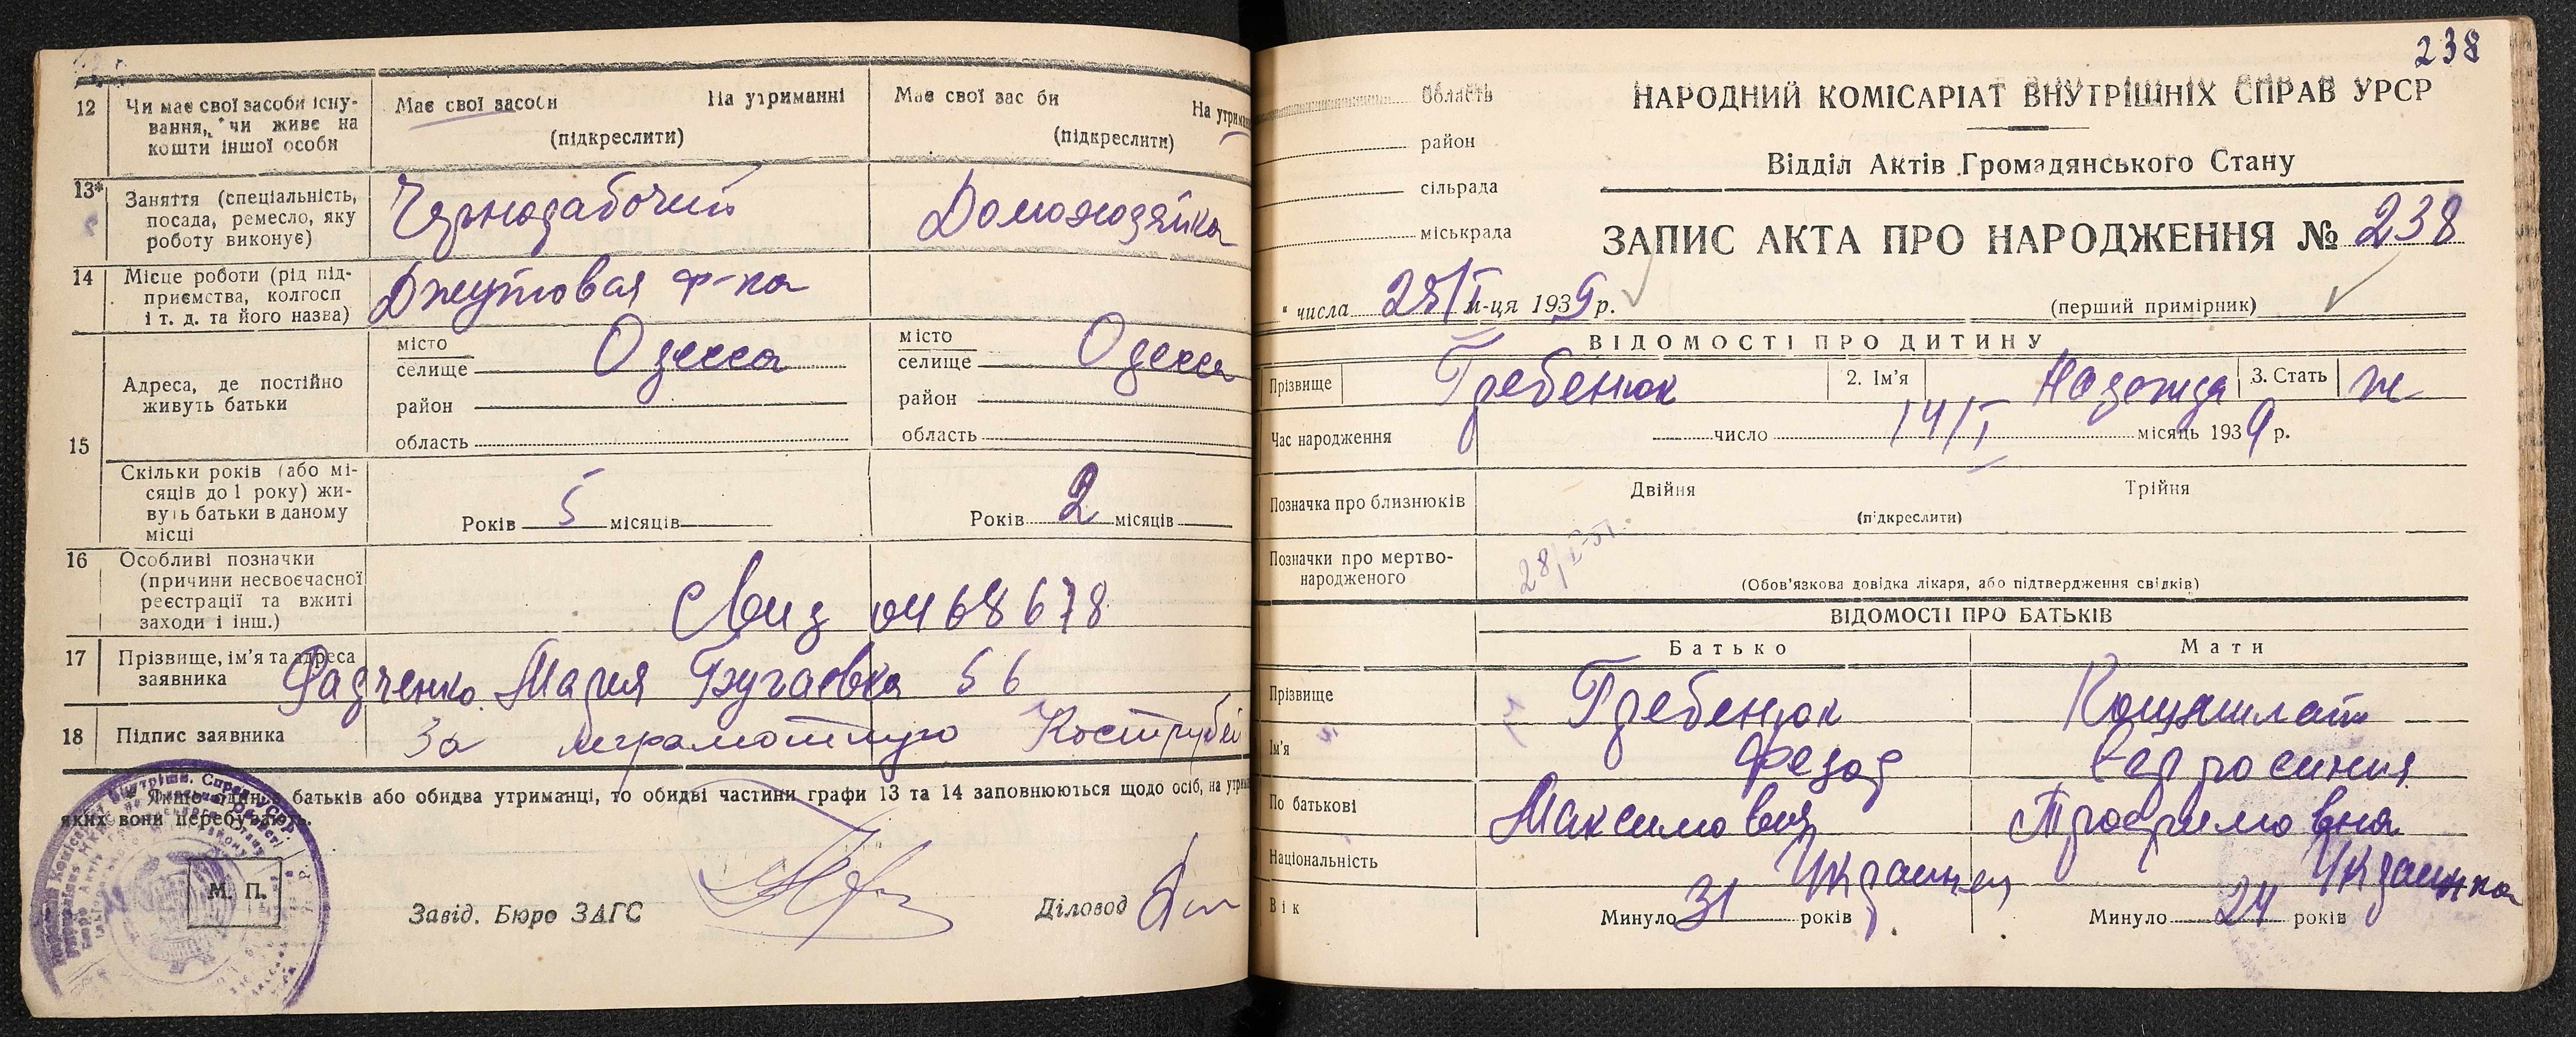 12 Чи має свої засоби існування, чи живе на кошти іншої особи
Має свої засоби На утриманні
(підкреслити)
Має свої зас би На утриман
(підкреслити)
13* Заняття (спеціальність, посада, ремесло, яку роботу виконує)
Чернорабочий
Домохозяйка
14 Місце роботи (рід підприємства, колгосп і т. д. та його назва)
Джутовая ф-ка
15 Адреса, де постійно живуть батьки
місто
селище Одесса
район
область
місто
селище Одесса
район
область
Скільки років (або місяців до 1 року) живуть батьки в даному місці
Років 5 місяців
Років 2 місяців
16 Особливі позначки (причини несвоєчасної реєстрації та вжиті заходи і інш.)
0468678
17 Прізвище, ім'я та адреса заявника
Радченко Мария Бугаевка 56
18 Підпис заявника
За неграмотную Кострубей
* Якщо один з батьків або обидва утриманці, то обидві частини графи 13 та 14 заповнюються щодо осіб, на утрим
яких вони перебувають.
М. П.
Завід. Бюро ЗАГС
Діловод
238
Область
район
сільрада
міськрада
НАРОДНИЙ КОМІСАРІАТ ВНУТРІШНІХ СПРАВ УРСР
Відділ Актів Громадянського Стану
ЗАПИС АКТА ПРО НАРОДЖЕННЯ № 238
" числа 28/I м-ця 1939 р.
(перший примірник)
ВІДОМОСТІ ПРО ДИТИНУ
Прізвище Гребенюк 2. Ім'я Надежда 3. Стать ж
Час народження число 14/I місяць 1939 р.
Позначка про близнюків Двійня Трійня
(підкреслити)
Позначки про мертвонародженого
(Обов'язкова довідка лікаря, або підтвердження свідків)
ВІДОМОСТІ ПРО БАТЬКІВ
Батько Мати
Прізвище Гребенюк
Ім'я Федор Евросиния
По батькові Максимович Трофимовна
Національність Украинец Украинка
Вік Минуло 31 років Минуло 24 років